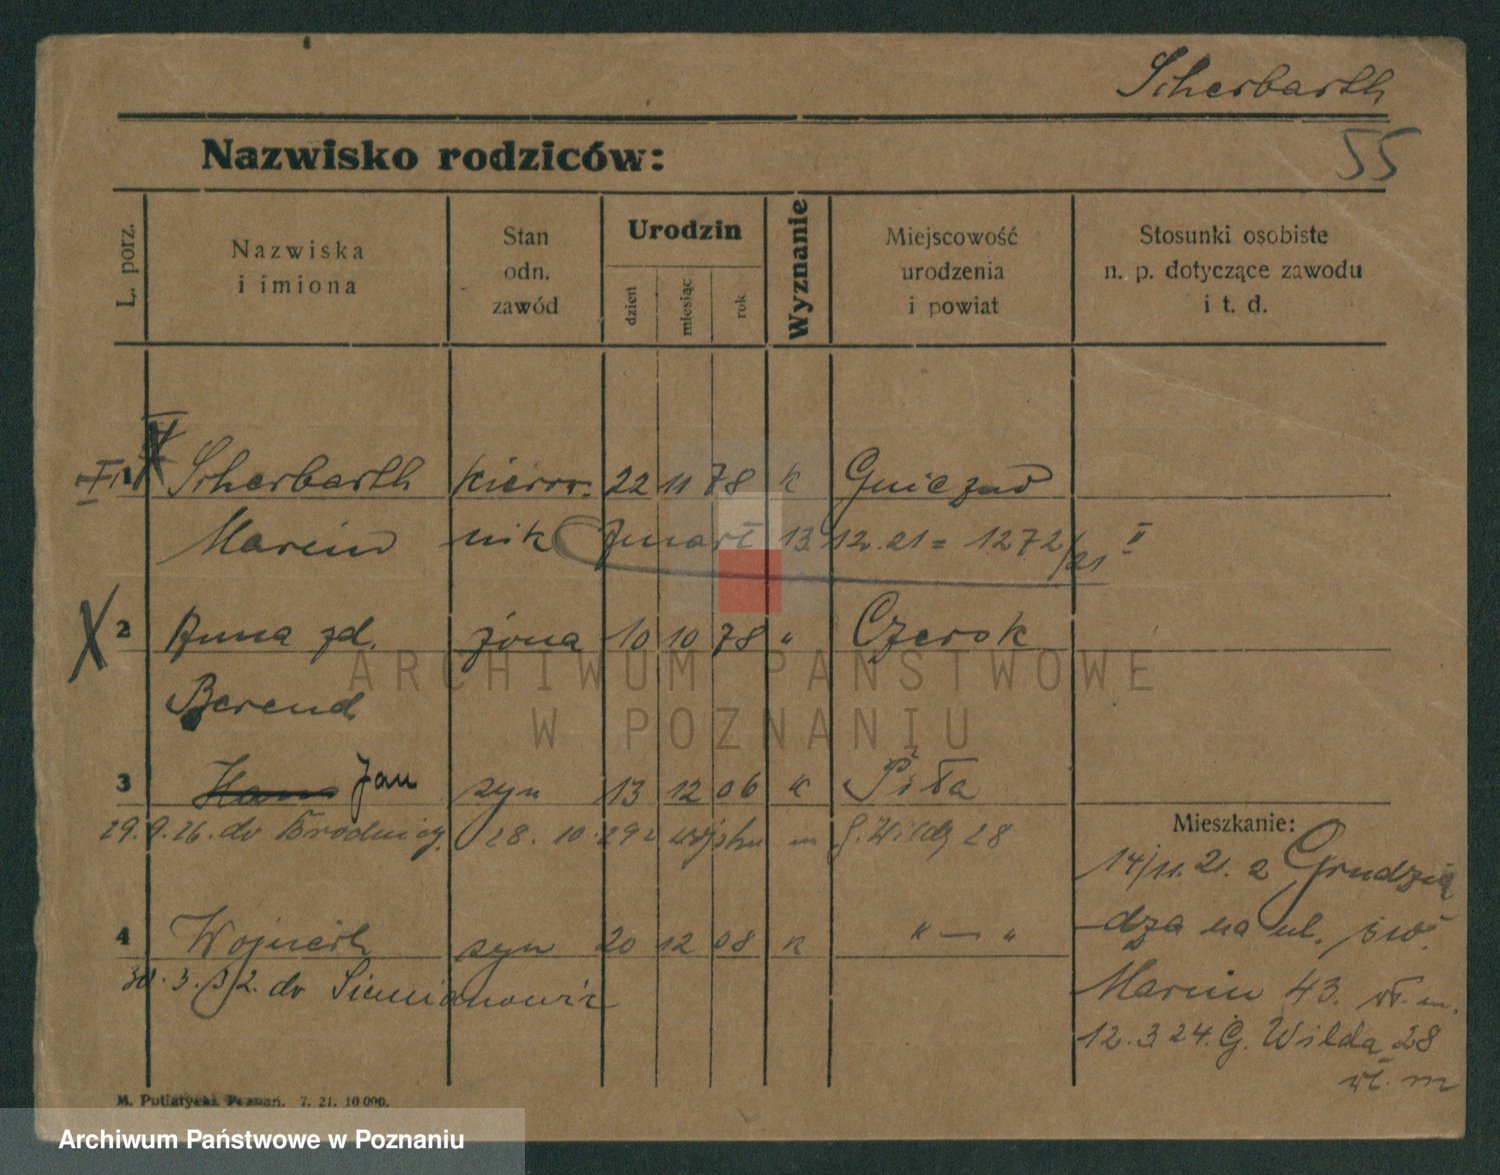 Scherbarth
55
Nazwisko rodziców:
L. porz.
Nazwiska
i imiona
Stan
odn.
zawód
Urodzin
dzień
miesiąc
rok
Wyznanie
Miejscowość
urodzenia
i powiat
Stosunki osobiste
n. p. dotyczące zawodu
i t. d.
1 Scherbarth kierow- 22 11 78 k
Marcin nik Zmarł 13. 12. 21 = 1272/21 II
2 Anna zd. żona 10 10 78 " Czersk
Berend
3 Hans Jan syn 13 12 06 k Piła
29.9.26. do Brodnicy. 28. 10. 29 z wojska G. Wilda 28
Mieszkanie:
14/11. 21. z Grudzią
dza na ul. św.
Marcin 43. wł. m.
12. 3 24. G. Wilda 28
wł. m
4 Wojciech syn 20 12 08 k " — "
30. 3. 32. do Siemianowic
M. Putiatycki, Poznań. 7. 21. 10 000.
ARCHIWUM PAŃSTWOWE
W POZNANIU
Archiwum Państwowe w Poznaniu